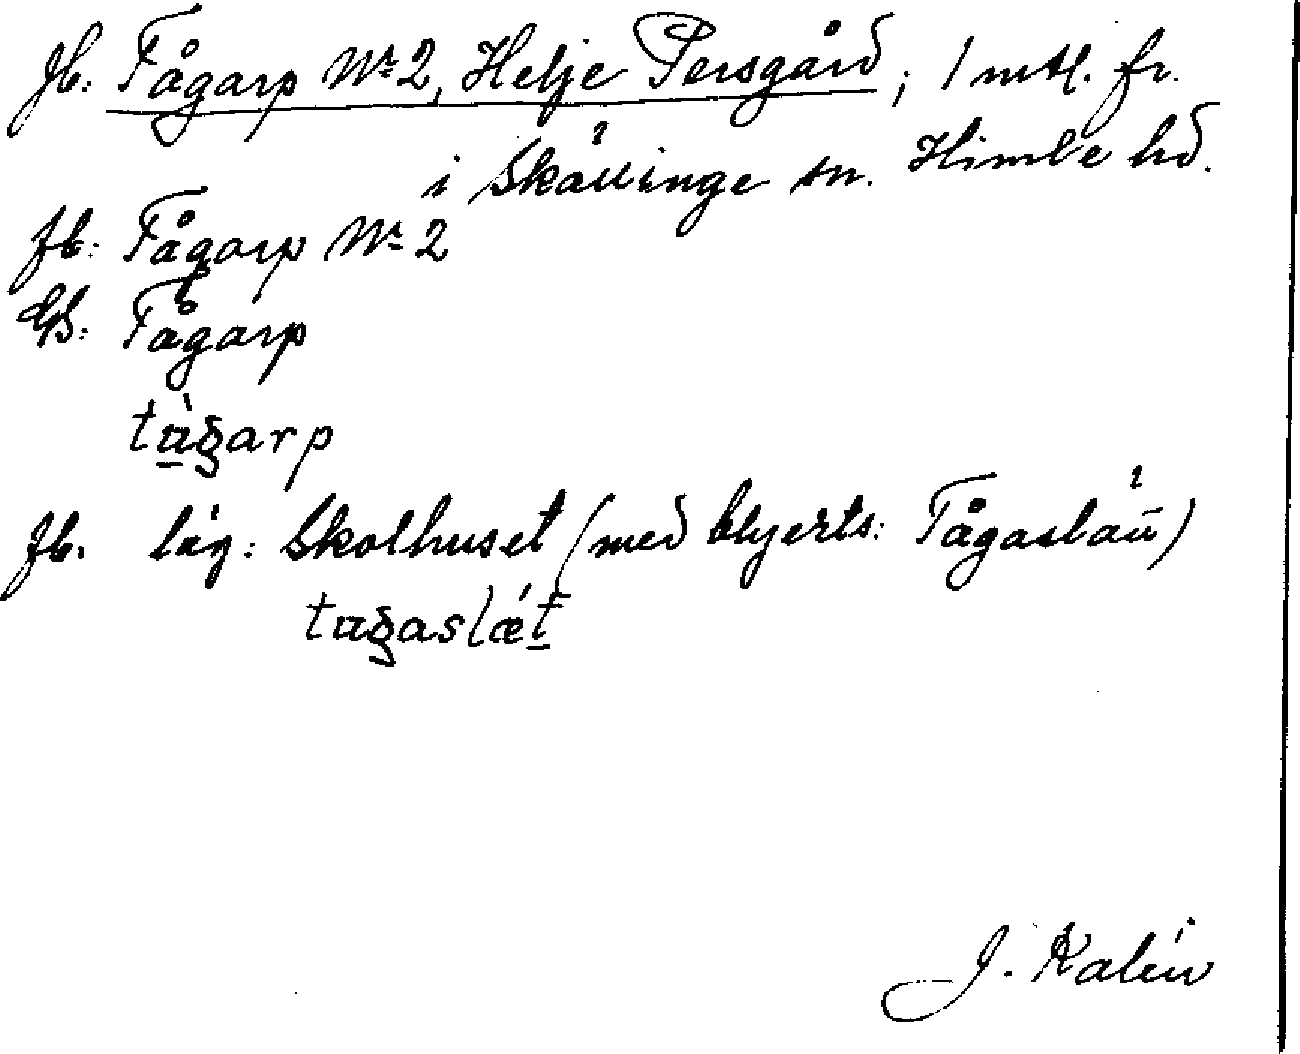 Jb. Tågarp Nr 2, Helje Persgård; 1 mtl. fr.
i Skällinge sn. Himle hd.
Jb: Tågarp Nr 2
GS: Tågarp
tɑ̀garp
Jb. läg: Skolhuset (med blyerts: Tågaslätt)
tɑgaslǽt
J. Kalén